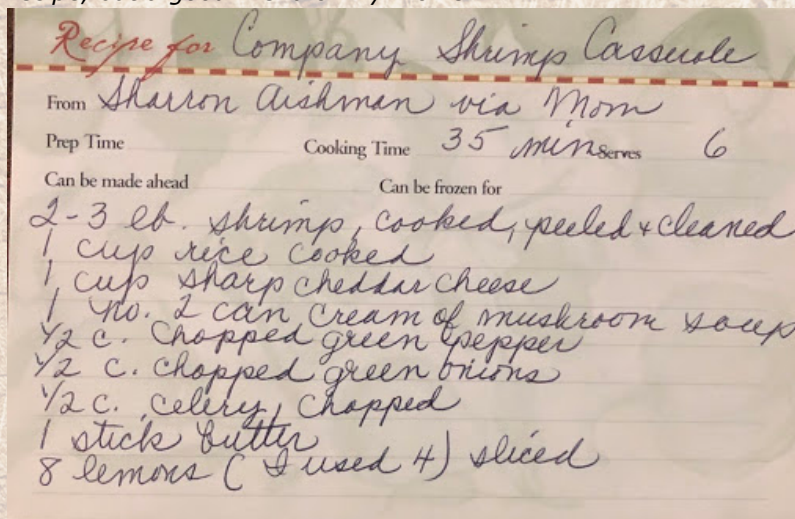 Recipe for Company Shrimp Casserole
From Sharron Aishman via Mom
Prep Time Cooking Time 35 min Serves 6
Can be made ahead Can be frozen for
2-3 lb. shrimp, cooked, peeled + cleaned
1 cup rice cooked
1 cup sharp cheddar cheese
1 no. 2 can cream of mushroom soup
1/2 c. chopped green pepper
1/2 c. chopped green onions
1/2 c. celery, chopped
1 stick butter
8 lemons (I used 4) sliced